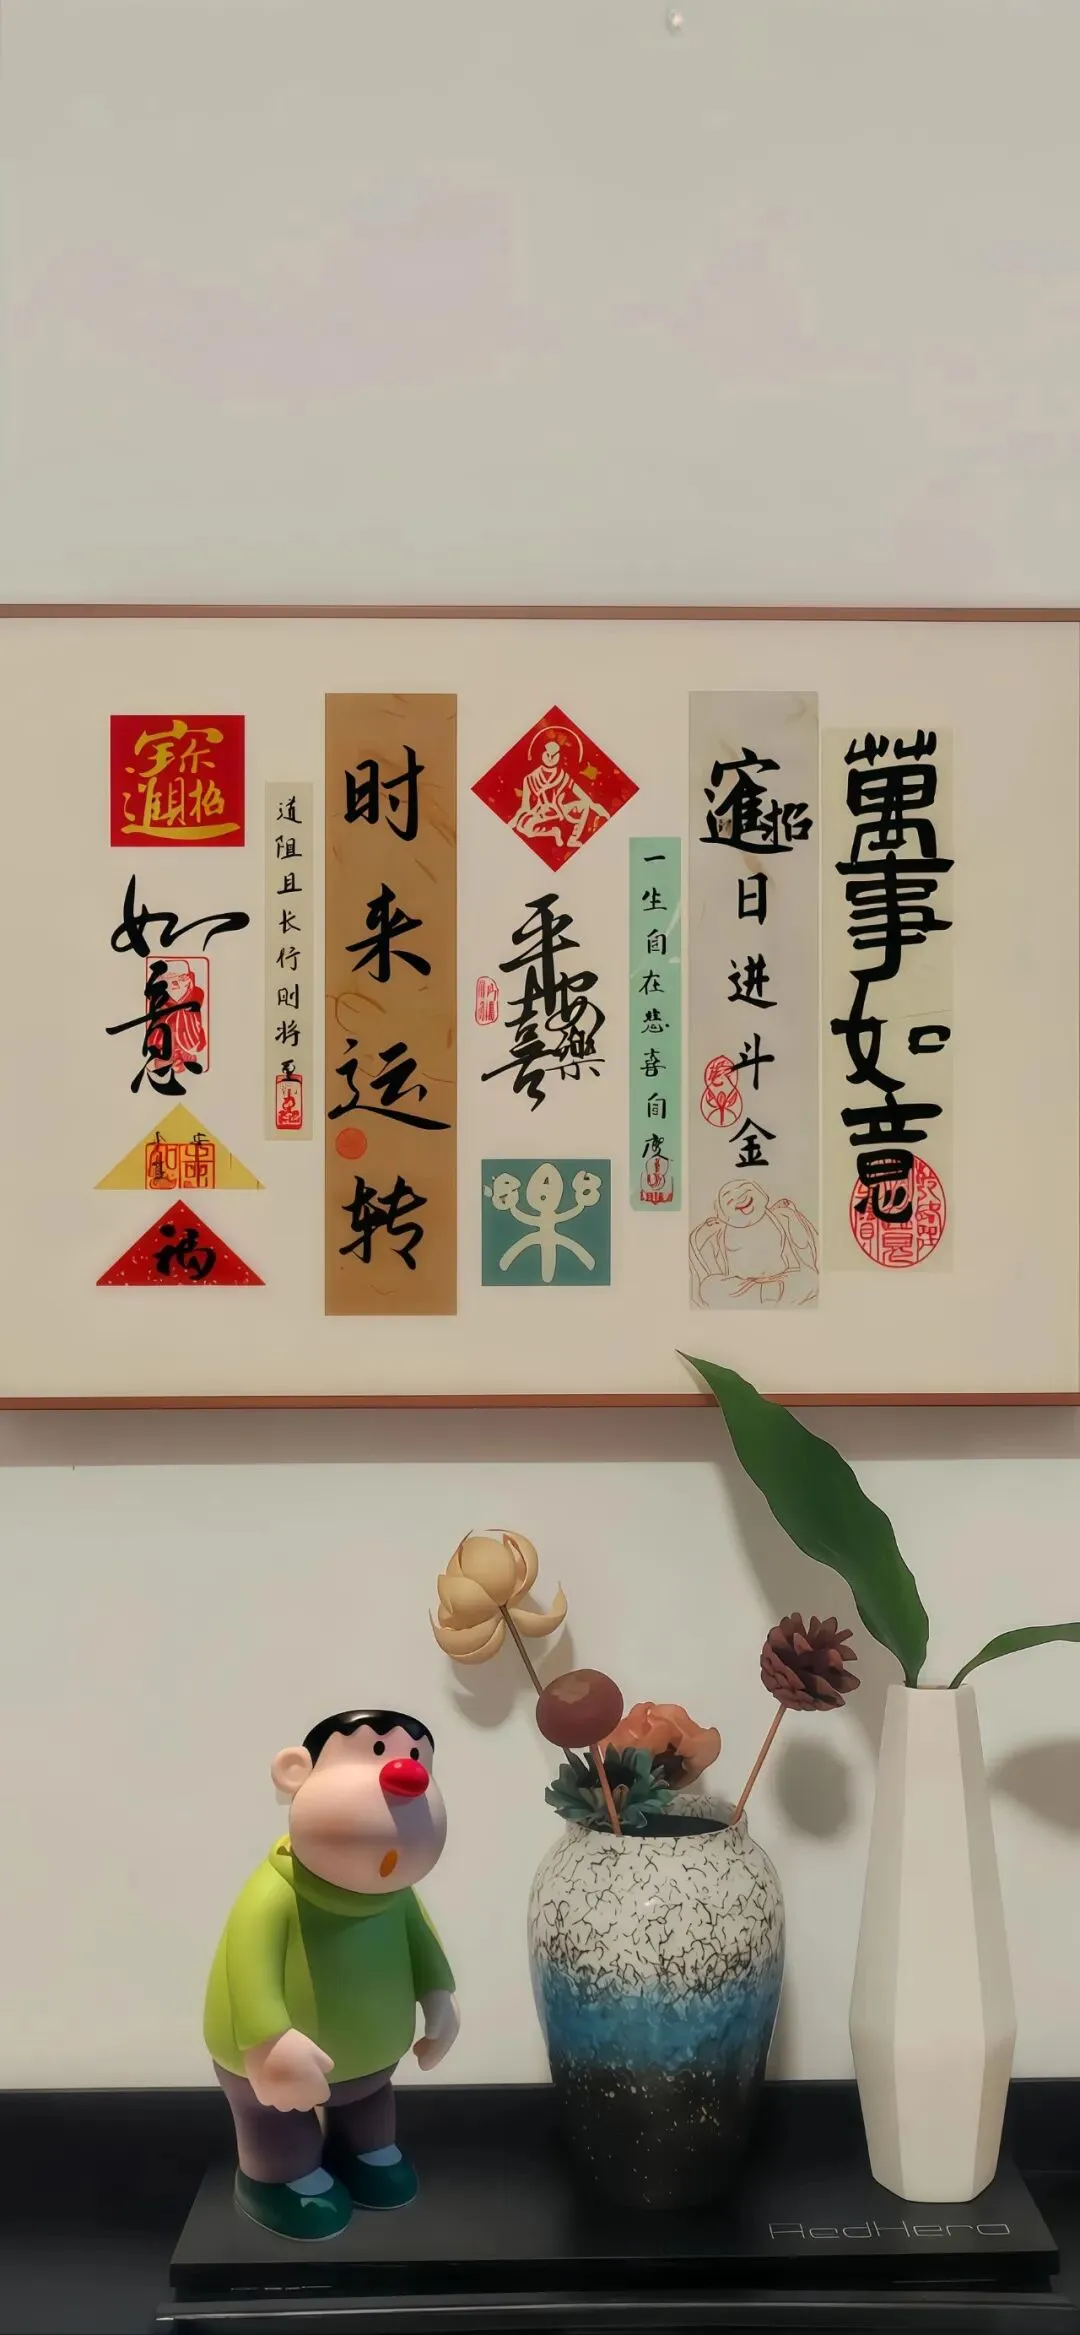 招财进宝
如意
福
道阻且长行则将至
时来运转
平安喜樂
樂
一生自在悲喜自度
招财進寶
日进斗金
萬事如意
RedHero